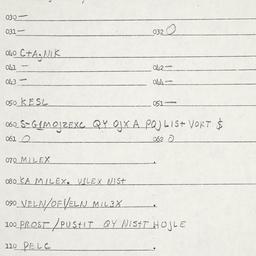 030 —
031 — 032 O
040 C+A.NIK
041 — 042 —
043 — 044 —
050 KESL 051 —
060 QY OJX A POJLIS+ VORT $
061 O 062 O
070 MILEX .
080 KA MILEX. VILEX NIS+
090 VELN/OF/VELN MILƐX .
100 PROST/PUS+IT QY NIS+T HOJLE
110 PELC .